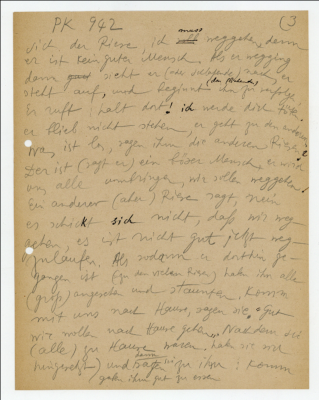 PK 942 (3
sich der Riese, ich muss weggehen, denn
er ist kein guter Mensch. Als er wegging
dann sieht er (der Schlafende) nach, er
steht auf, und beginnt ihn zu verfolgen
Er ruft: halt dort! ich werde dich töten.
er blieb nicht stehen, er geht zu den anderen
Was ist los, sagen ihm die anderen Riesen?
Der ist (sagt er) ein böser Mensch, er wird
uns alle umbringen, wir sollen weggehen!
Ein anderer (aber) Riese sagt, nein
es schickt sich nicht, daß wir weg
gehen, es ist nicht gut jetzt weg-
zulaufen. Als er dorthin ge-
gangen ist (zu den vielen Riesen) habn ihn alle
(groß) angesehen und staunten. Komm
mit uns nach Hause, sagen sie. Gut
wir wollen nach Hause gehen. Nachdem sie
(alle) zu Hause waren, habn sie sich
hingesetzt und sagten zu ihm: Komm
gebn ihm gut zu essen